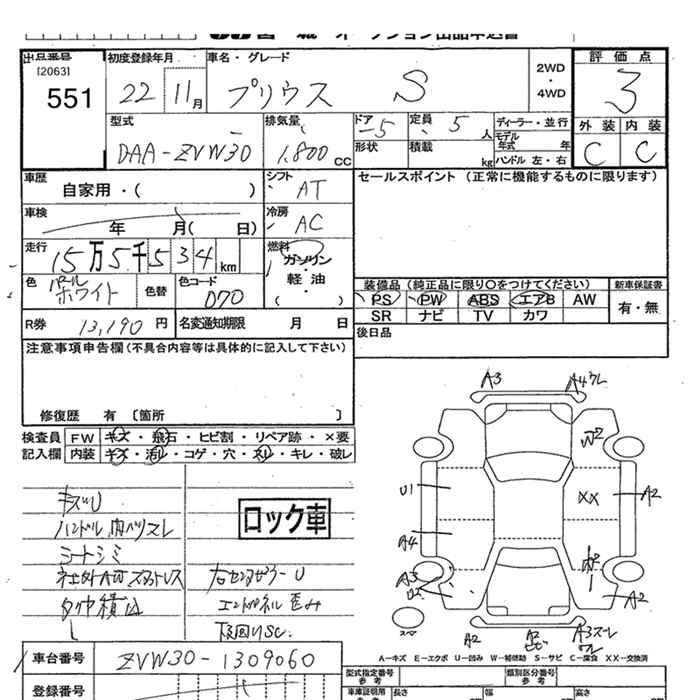 出品番号 初度登録年月 車名・グレード 2WD・4WD 評価点
[2063]
551 22 11月 プリウス S 3
型式 排気量 ドア 5 定員 5人 ディーラー・並行 外装 内装
DAA-ZVW30 1,800cc 形状 積載 kg モデル年式 年 C C
ハンドル 左・右
車歴 自家用・( ) シフト AT セールスポイント (正常に機能するものに限ります)
車検 年 月( 日) 冷房 AC
走行 15万5千534km 燃料 ガソリン・軽油 ( )
色 パールホワイト 色替 色コード 070 装備品 (純正品に限り○をつけてください) 新車保証書
PS PW ABS エアB AW 有・無
SR ナビ TV カワ
R券 13,190円 名変通知期限 月 日 後日品
注意事項申告欄(不具合内容等は具体的に記入して下さい)
修復歴 有 [箇所 ]
検査員 FW キズ・飛石・ヒビ割・リペア跡・×要
記入欄 内装 キズ・汚れ・コゲ・穴・スレ・キレ・破レ
キズU
ハンドル,内ハリスレ
シートシミ
社外AWスタットレス
タイヤ積込
ロック車
右センタピラーU
エンドパネル歪み
下回りSC.
A3 A4ワレ
W2
U1 XX A2
A4
A3
U2 A2
スペア A2 A2 A3スレ
ワレ
A-キズ E-エクボ U-凹み W-補修跡 S-サビ C-腐食 XX-交換済
車台番号 ZVW30-1309060 型式指定番号 参考 類別区分番号 参考
登録番号 車庫証明用 参考 長さ 幅 高さ